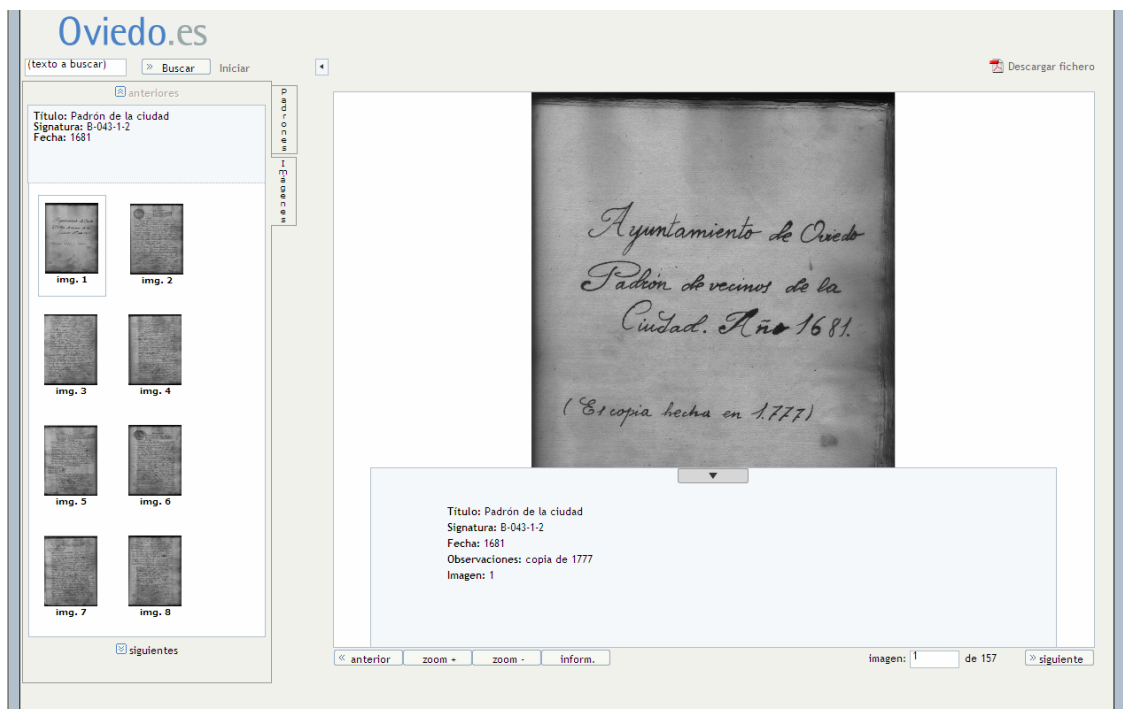 Oviedo.es
(texto a buscar)
» Buscar
Iniciar
Descargar fichero
anteriores
Título: Padrón de la ciudad
Signatura: B-043-1-2
Fecha: 1681
Padrones
Imágenes
img. 1
img. 2
img. 3
img. 4
img. 5
img. 6
img. 7
img. 8
siguientes
Ayuntamiento de Oviedo
Padrón de vecinos de la
Ciudad. Año 1681.
(Es copia hecha en 1.777)
Título: Padrón de la ciudad
Signatura: B-043-1-2
Fecha: 1681
Observaciones: copia de 1777
Imagen: 1
« anterior
zoom +
zoom -
inform.
imagen: 1 de 157
» siguiente